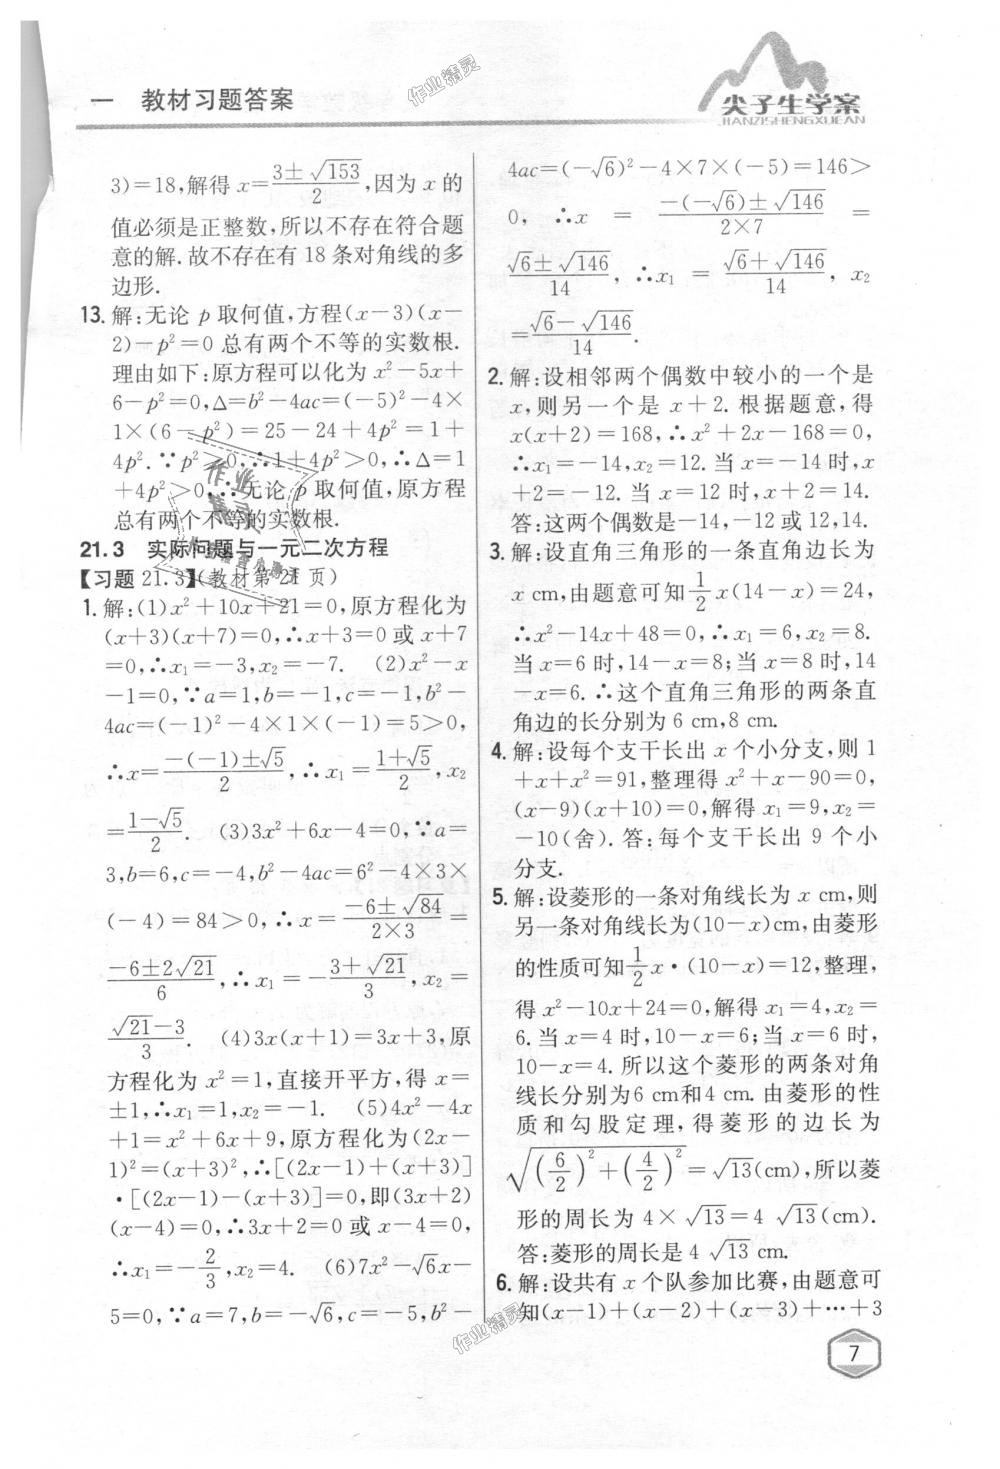 一 教材习题答案
尖子生学案
JIANZISHENGXUEAN
3)=18,解得 x=(3±√153)/2,因为 x 的
值必须是正整数,所以不存在符合题
意的解.故不存在有 18 条对角线的多
边形.
13. 解:无论 p 取何值,方程(x-3)(x-
2)-p²=0 总有两个不等的实数根.
理由如下:原方程可以化为 x²-5x+
6-p²=0,Δ=b²-4ac=(-5)²-4×
1×(6-p²)=25-24+4p²=1+
4p².∵p²≥0,∴1+4p²>0,∴Δ=1
+4p²>0.∴无论 p 取何值,原方程
总有两个不等的实数根.
21.3 实际问题与一元二次方程
【习题 21.3】(教材第 21 页)
1. 解:(1)x²+10x+21=0,原方程化为
(x+3)(x+7)=0,∴x+3=0 或 x+7
=0,∴x₁=-3,x₂=-7. (2)x²-x
-1=0,∵a=1,b=-1,c=-1,b²-
4ac=(-1)²-4×1×(-1)=5>0,
∴x=(-(-1)±√5)/2,∴x₁=(1+√5)/2,x₂
=(1-√5)/2. (3)3x²+6x-4=0,∵a=
3,b=6,c=-4,b²-4ac=6²-4×3×
(-4)=84>0,∴x=(-6±√84)/(2×3)=
(-6±2√21)/6,∴x₁=-(3+√21)/3,x₂=
(√21-3)/3. (4)3x(x+1)=3x+3,原
方程化为 x²=1,直接开平方,得 x=
±1,∴x₁=1,x₂=-1. (5)4x²-4x
+1=x²+6x+9,原方程化为(2x-
1)²=(x+3)²,∴[(2x-1)+(x+3)]
·[(2x-1)-(x+3)]=0,即(3x+2)
(x-4)=0,∴3x+2=0 或 x-4=0,
∴x₁=-2/3,x₂=4. (6)7x²-√6x-
5=0,∵a=7,b=-√6,c=-5,b²-
4ac=(-√6)²-4×7×(-5)=146>
0,∴x=(-(-√6)±√146)/(2×7)=
(√6±√146)/14,∴x₁=(√6+√146)/14,x₂
=(√6-√146)/14.
2. 解:设相邻两个偶数中较小的一个是
x,则另一个是 x+2.根据题意,得
x(x+2)=168,∴x²+2x-168=0,
∴x₁=-14,x₂=12.当 x=-14 时,x
+2=-12.当 x=12 时,x+2=14.
答:这两个偶数是-14,-12或12,14.
3. 解:设直角三角形的一条直角边长为
x cm,由题意可知1/2x(14-x)=24,
∴x²-14x+48=0,∴x₁=6,x₂=8.
当 x=6 时,14-x=8;当 x=8 时,14
-x=6.∴这个直角三角形的两条直
角边的长分别为 6 cm,8 cm.
4. 解:设每个支干长出 x 个小分支,则 1
+x+x²=91,整理得 x²+x-90=0,
(x-9)(x+10)=0,解得 x₁=9,x₂=
-10(舍).答:每个支干长出 9 个小
分支.
5. 解:设菱形的一条对角线长为 x cm,则
另一条对角线长为(10-x)cm,由菱形
的性质可知1/2x·(10-x)=12,整理,
得 x²-10x+24=0,解得 x₁=4,x₂=
6.当 x=4 时,10-x=6;当 x=6 时,
10-x=4.所以这个菱形的两条对角
线长分别为6 cm和4 cm.由菱形的性
质和勾股定理,得菱形的边长为
√((6/2)²+(4/2)²)=√13(cm),所以菱
形的周长为 4×√13=4√13(cm).
答:菱形的周长是 4√13 cm.
6. 解:设共有 x 个队参加比赛,由题意可
知(x-1)+(x-2)+(x-3)+…+3
7
作业精灵
作业精灵
作业
精灵